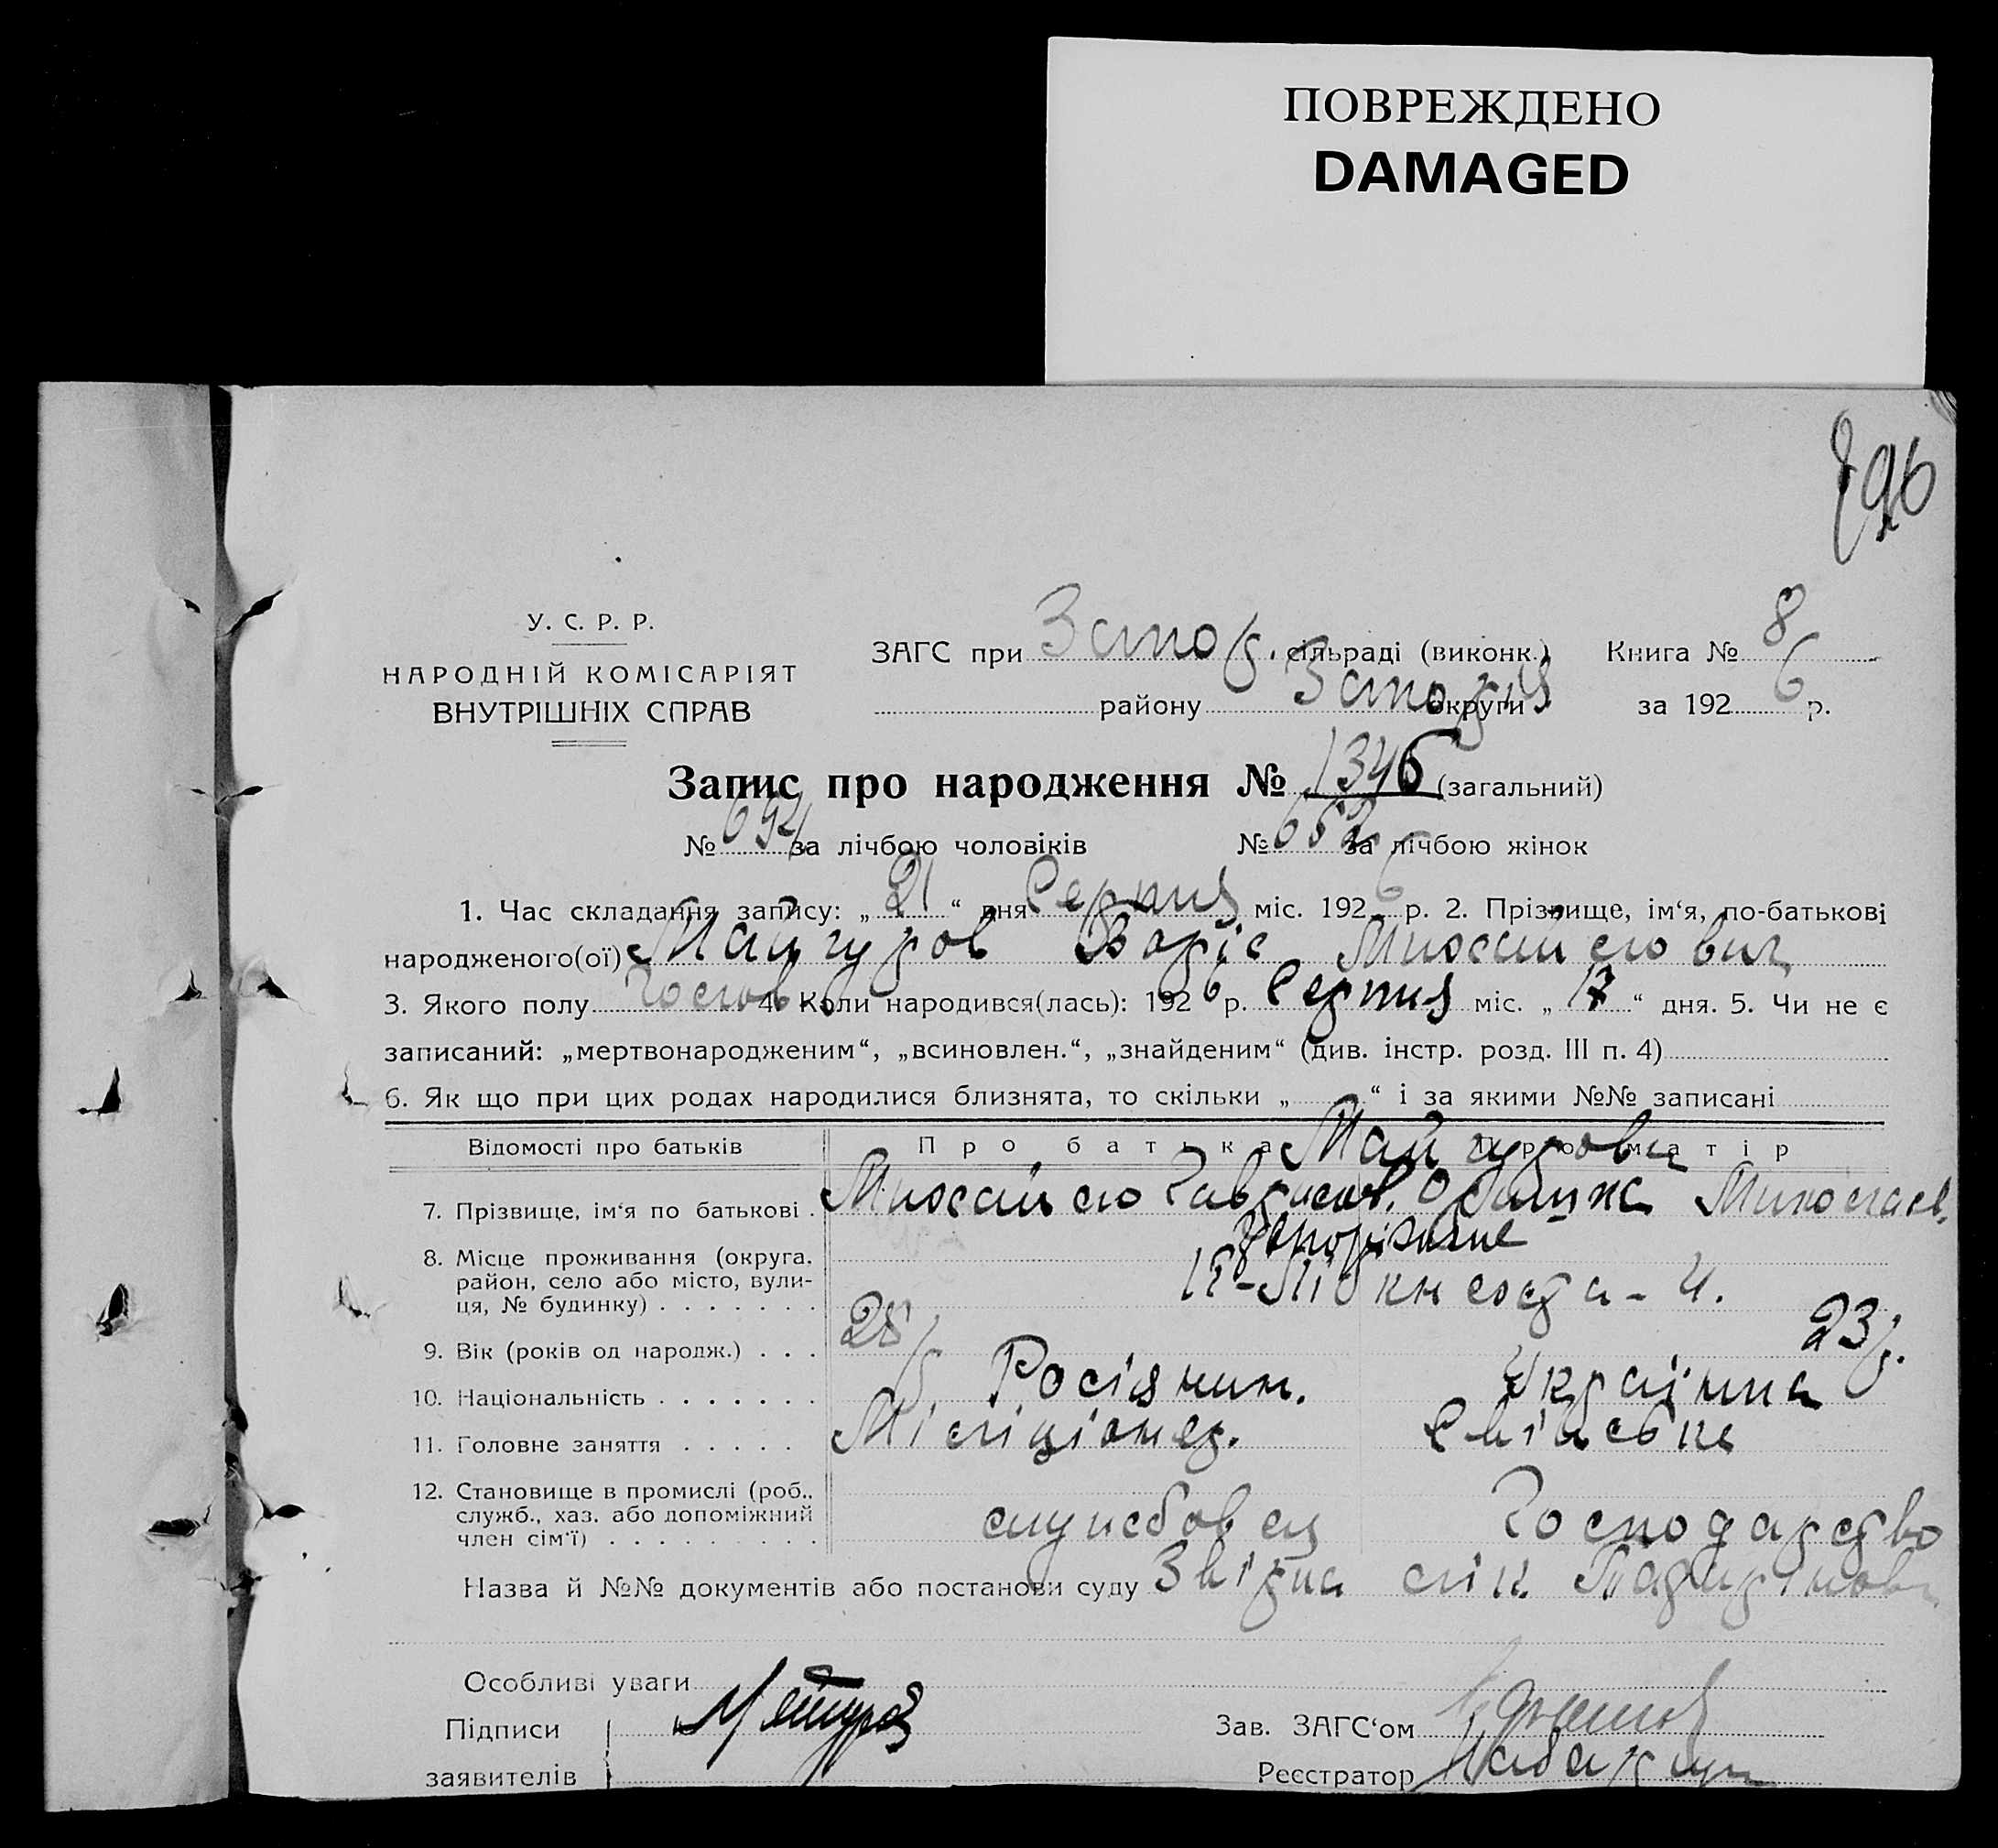 ПОВРЕЖДЕНО
DAMAGED
896
У. С. Р. Р.
НАРОДНІЙ КОМІСАРІЯТ
ВНУТРІШНІХ СПРАВ
ЗАГС при Запор. сільраді (виконк.) Книга № 8
району Запоріз округи за 192 6 р.
Запис про народження № 1346 (загальний)
№ 694 за лічбою чоловіків № 652 за лічбою жінок
1. Час складання запису: „ 21 “ дня Серпня міс. 192 6 р. 2. Прізвище, ім‘я, по-батькові
народженого(ої) Майгуров Боріс Михайлович
3. Якого полу Чолов. 4. Коли народився(лась): 192 6 р. Серпня міс. „ 17 “ дня. 5. Чи не є
записаний: „мертвонародженим“, „всиновлен.“, „знайденим“ (див. інстр. розд. III п. 4)
6. Як що при цих родах народилися близнята, то скільки „ “ і за якими №№ записані
Відомості про батьків Про батька Про матір
Майгурови
7. Прізвище, ім‘я по батькові . Михайло Гаврилов. Миколаєв.
Запоріжжя
8. Місце проживання (округа, район, село або місто, вулиця, № будинку) . . . . . . . К-Лібкнехта - 4.
9. Вік (років од народж.) . . . 28 р 23 р.
10. Національність . . . . . . . Росіянин. Українка
11. Головне заняття . . . . . Міліціонер. Хатнє
12. Становище в промислі (роб., служб., хаз. або допоміжний член сім‘ї) . . . . . . . . . службовец Господарство
Назва й №№ документів або постанови суду
Особливі уваги
Підписи
заявителів
Зав. ЗАГС‘ом
Реєстратор